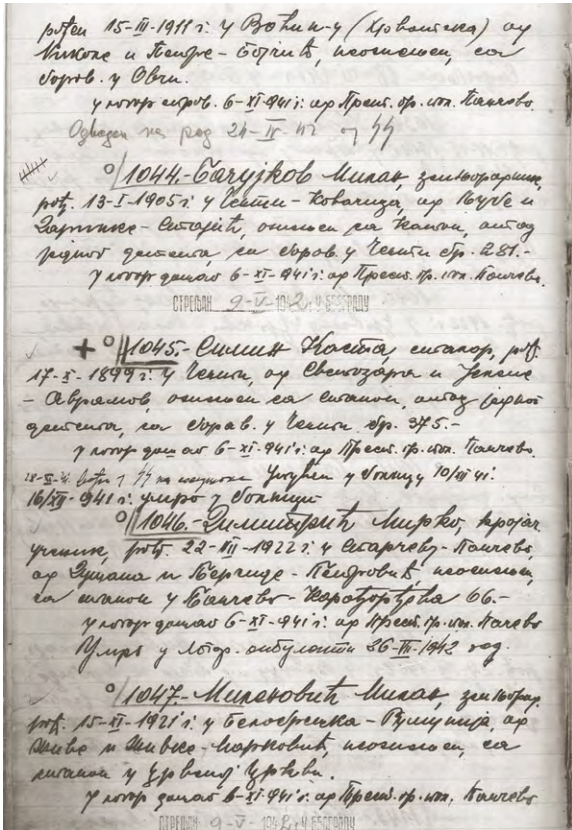 рођен 15-III-1911 г. у Воћин-у (Хрватска) од
Николе и Петре - Бојчић, неожењен, са
борав. у Овчи.
у логор спров. 6-XI-941 г. од Прест. пр. ист. Панчево.
Одведен на рад 24-IV-42 од SS
1044.- Бачујков Милан, земљорадник,
рођ. 13-I-1905 г. у Ченти - Ковачица, од Љубе и
ожењен са једног детета са борав. у Ченти бр. 281.-
у логор дошао 6-XI-941 г. од Прест. пр. ист. Панчево.
СТРЕЉАН 9-V-1942 г. У БЕОГРАДУ
1045.- Силин Коста, столар, рођ.
17-X-1899 г. у Ченти, од Светозара и
- Аврамов, ожењен са станом, отац једног
детета, са борав. у Ченти бр. 375.-
у логор дошао 6-XI-941 г. од Прест. пр. ист. Панчево.
SS Упућен у болницу 10/XII 41.
16/XII-941 г. умро у болници
1046.- Димитрић Мирко, кројач.
ученик, рођ. 22-III-1922 г. у Старчеву - Панчево,
од Душана и - Петровић, неожењен,
са станом у Панчево - Карађорђева 66.-
у логор дошао 6-XI-941 г. од Прест. пр. ист. Панчево
Умро у логор. амбуланти 26-III-1942 год.
1047.- Милановић Милан, земљорад.
рођ. 15-XI-1921 г. у - Румунија, од
Живе и Живке - Марковић, неожењен, са
станом у Црвеној Цркви.
у логор дошао 6-XI-941 г. од Прест. пр. ист. Панчево
СТРЕЉАН 9-V-1942 г. У БЕОГРАДУ